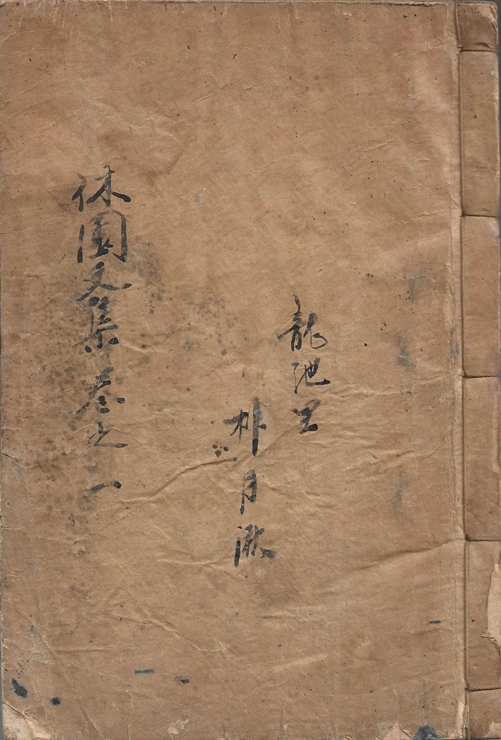 龍池里
朴月
休園文集卷之一